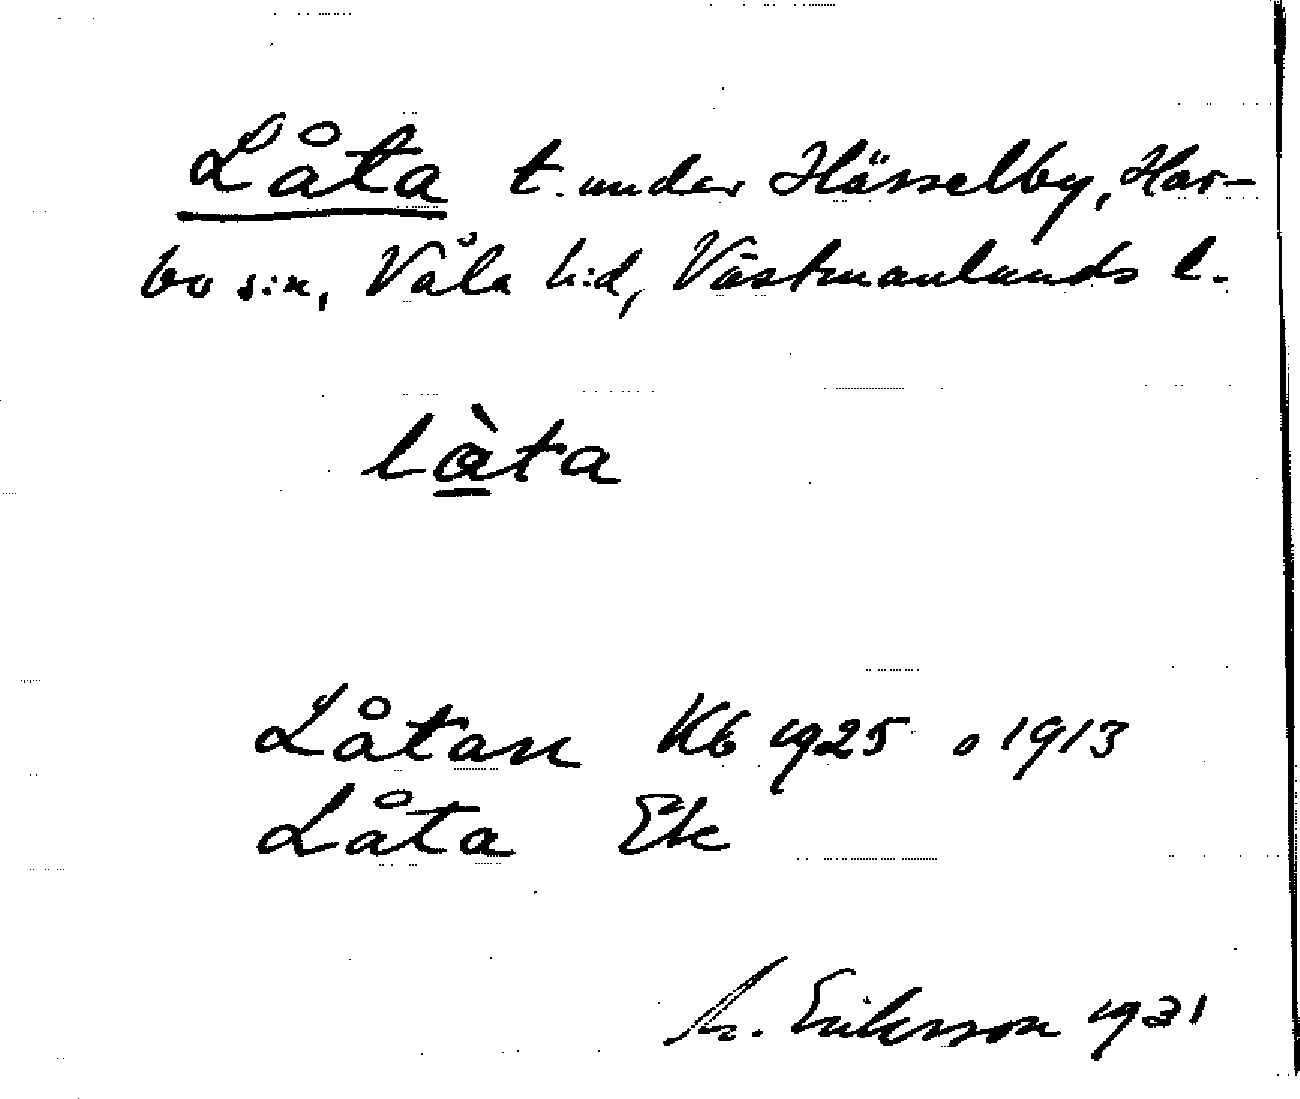 Låta t. under Hässelby, Har-
bo s:n, Våla h:d, Västmanlands l.
làta
Låtan Kb 1925 o 1913
Låta Ek
M. Eriksson 1931